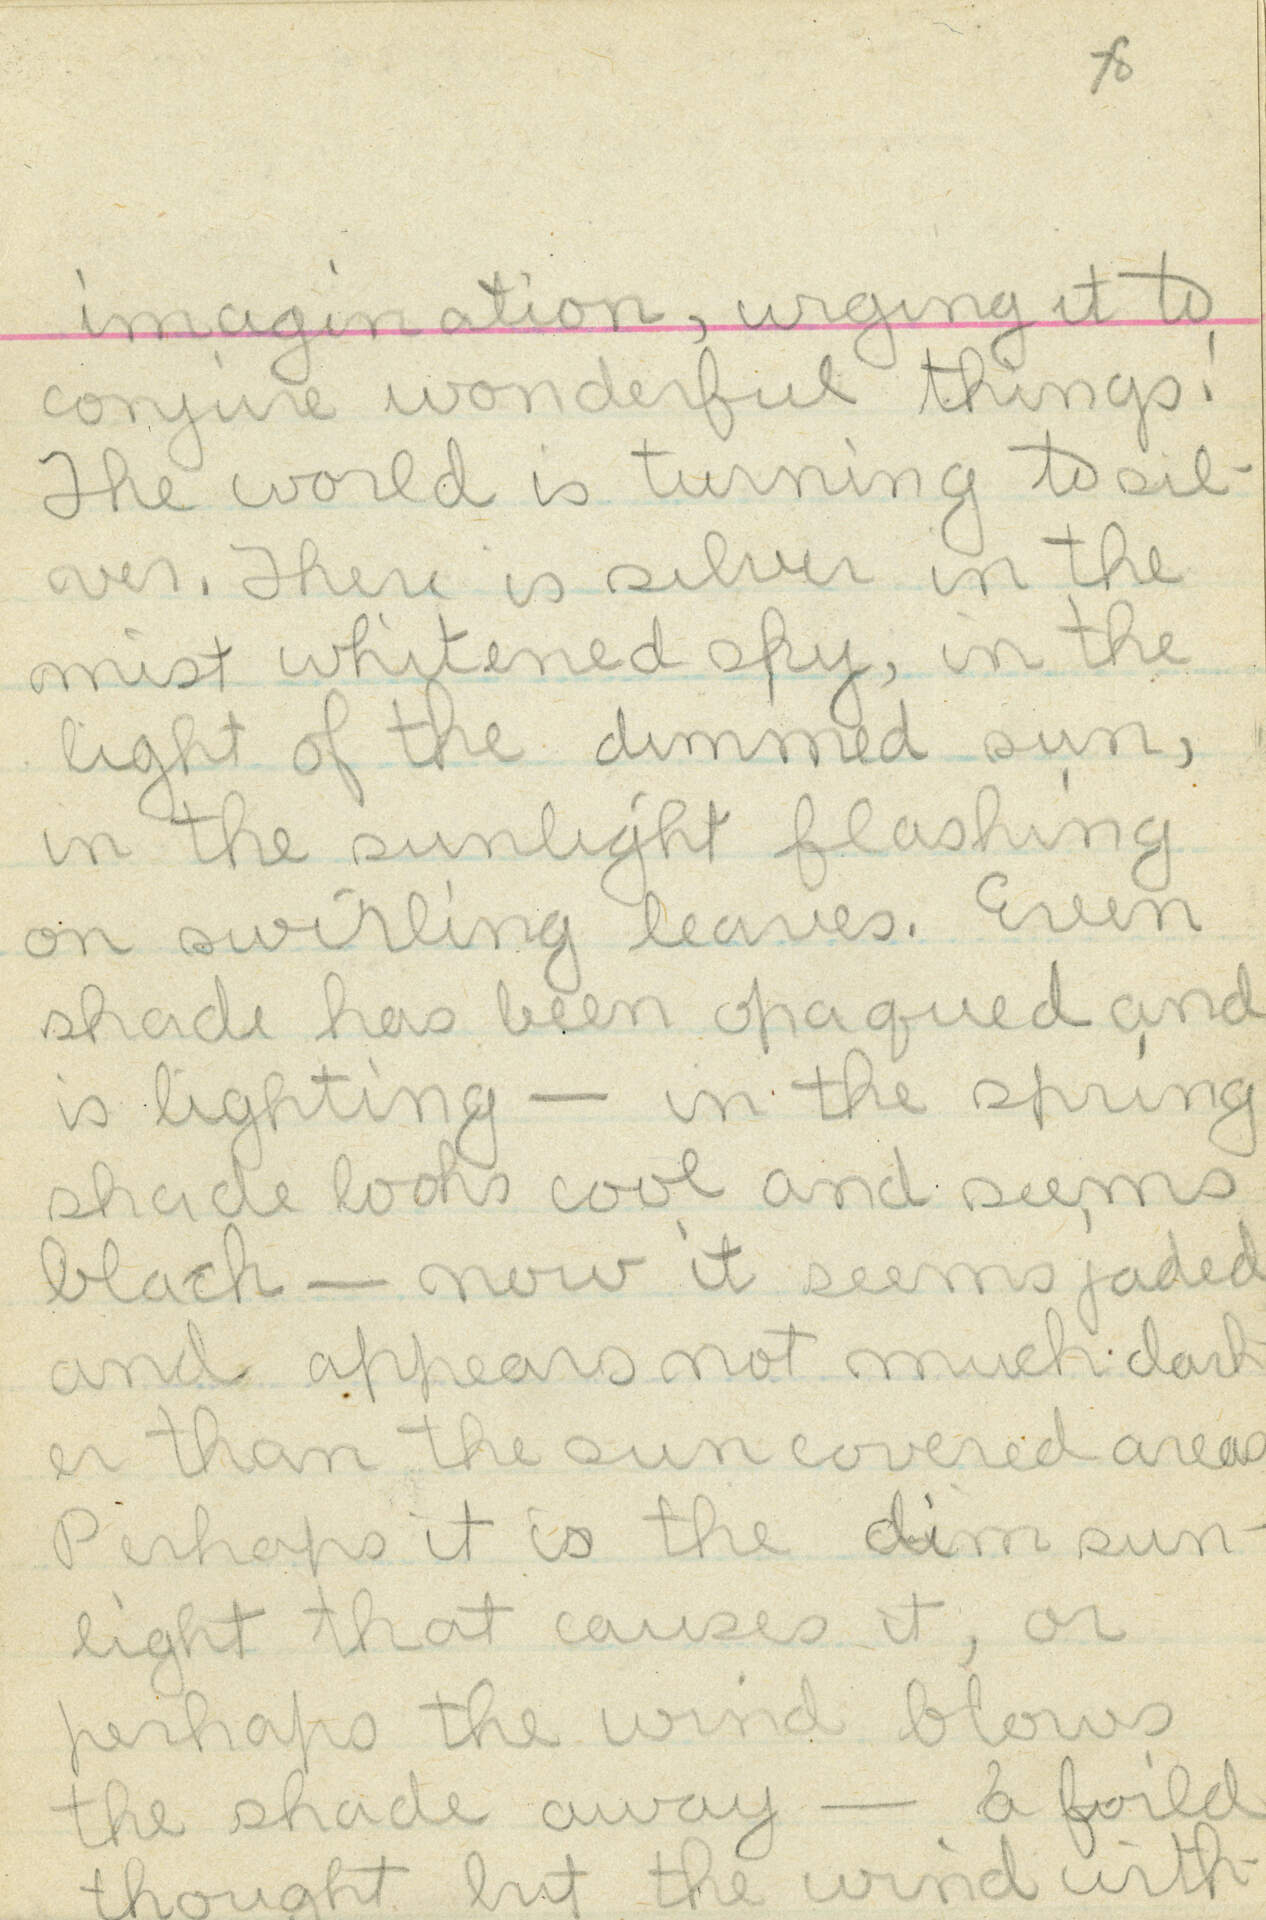 78
imagination, urging it to
conjure wonderful things!
The world is turning to sil-
ver. There is silver in the
mist whitened sky, in the
light of the dimmed sun,
in the sunlight flashing
on swirling leaves. Even
shade has been opaqued and
is lighting — in the spring
shade looks cool and seems
black — now it seems jaded
and appears not much dark-
er than the sun covered areas
Perhaps it is the dim sun-
light that causes it, or
perhaps the wind blows
the shade away — a
thought but the wind with-